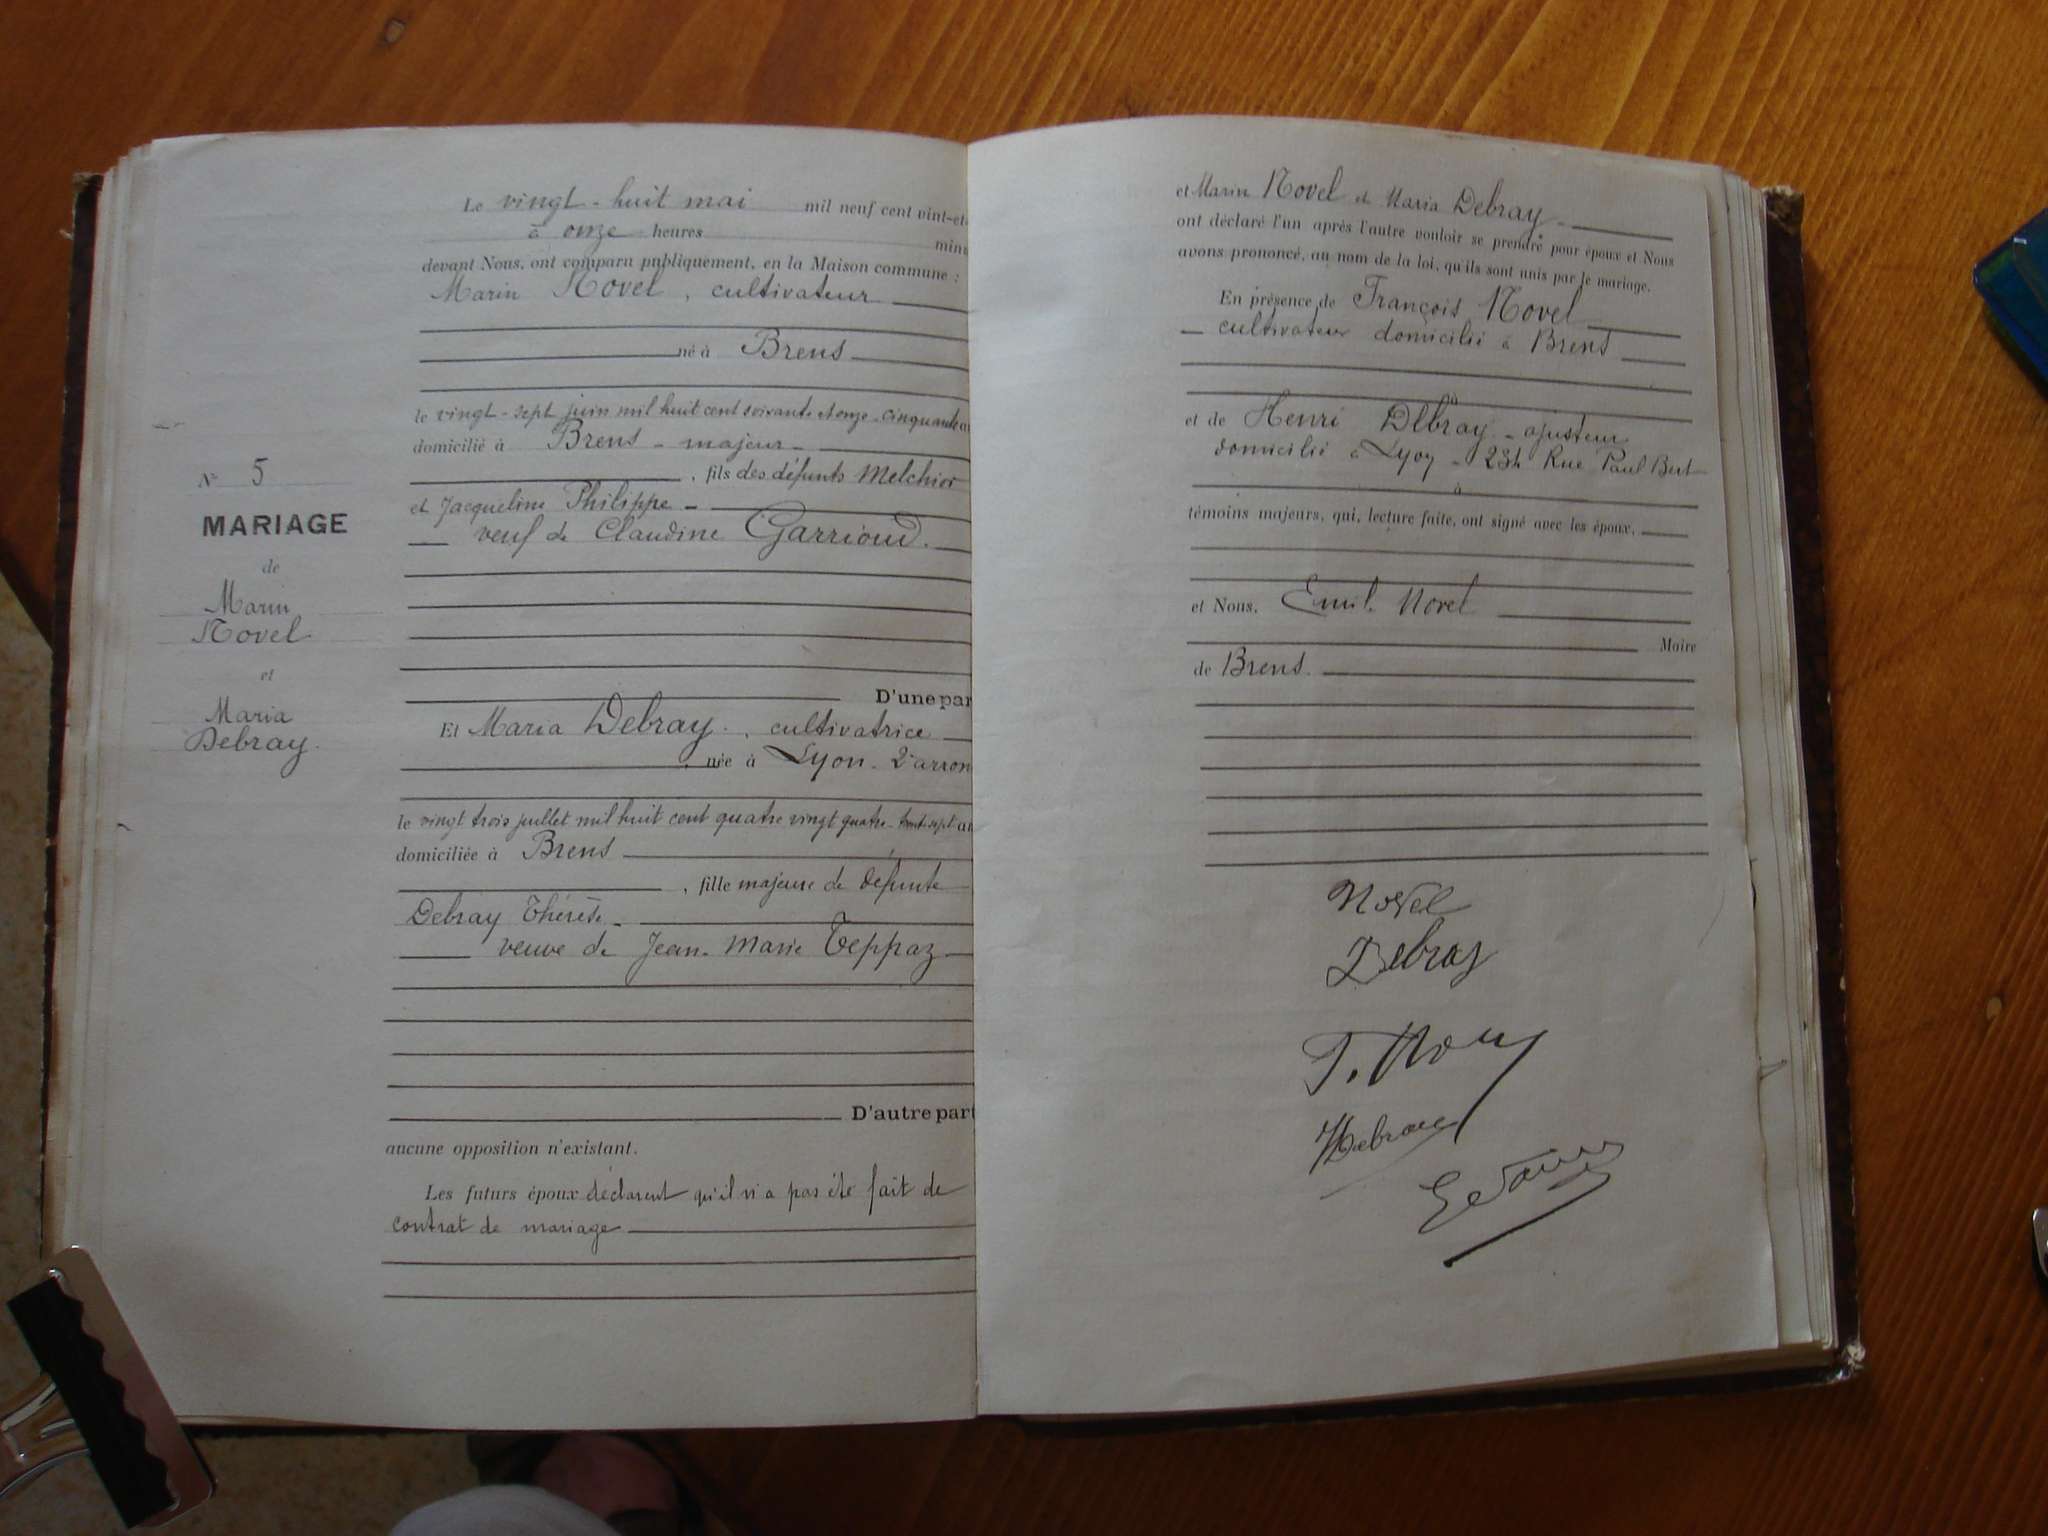 Le vingt-huit mai mil neuf cent vint-et-
à onze heures minu
devant Nous, ont comparu publiquement, en la Maison commune :
Marin Novel, cultivateur
né à Brens
le vingt-sept juin mil huit cent soixante et onze - cinquante a
domicilié à Brens - majeur -
N° 5
, fils des défunts Melchior
et Jacqueline Philippe -
MARIAGE
veuf de Claudine Garrioud.
de
Marin
Novel
et
D'une par
Maria
Debray.
Et Maria Debray, cultivatrice
, née à Lyon - 2e arron
le vingt trois juillet mil huit cent quatre vingt quatre - trente-sept a
domiciliée à Brens
, fille majeure de défunte
Debray Thérèse -
veuve de Jean-Marie Teppaz
D'autre part
aucune opposition n'existant.
Les futurs époux déclarent qu'il n'a pas été fait de
contrat de mariage
et Marin Novel et Maria Debray
ont déclaré l'un après l'autre vouloir se prendre pour époux et Nous
avons prononcé, au nom de la loi, qu'ils sont unis par le mariage.
En présence de François Novel
cultivateur domicilié à Brens
à
et de Henri Debray - ajusteur
domicilié à Lyon - 234 Rue Paul Bert
à
témoins majeurs, qui, lecture faite, ont signé avec les époux,
et Nous, Emile Novel
Maire
de Brens.
Novel
Debray
HDebray